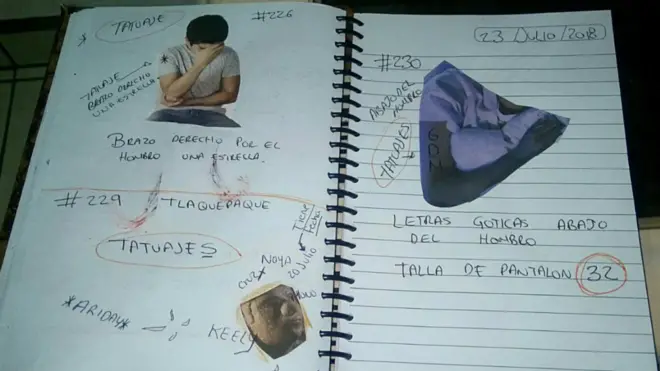 TATUAJE
#226
TATUAJE
BRAZO DERECHO
UNA ESTRELLA
BRAZO DERECHO POR EL
HOMBRO UNA ESTRELLA.
#229 TLAQUEPAQUE
TATUAJES
TIENE
NOYA
20 JULIO
CRUZ
*ARIDAY*
KEELY
23 JULIO/2018
#230
ABAJO DEL
HOMBRO
TATUAJES
LETRAS GOTICAS ABAJO
DEL HOMBRO
TALLA DE PANTALON 32